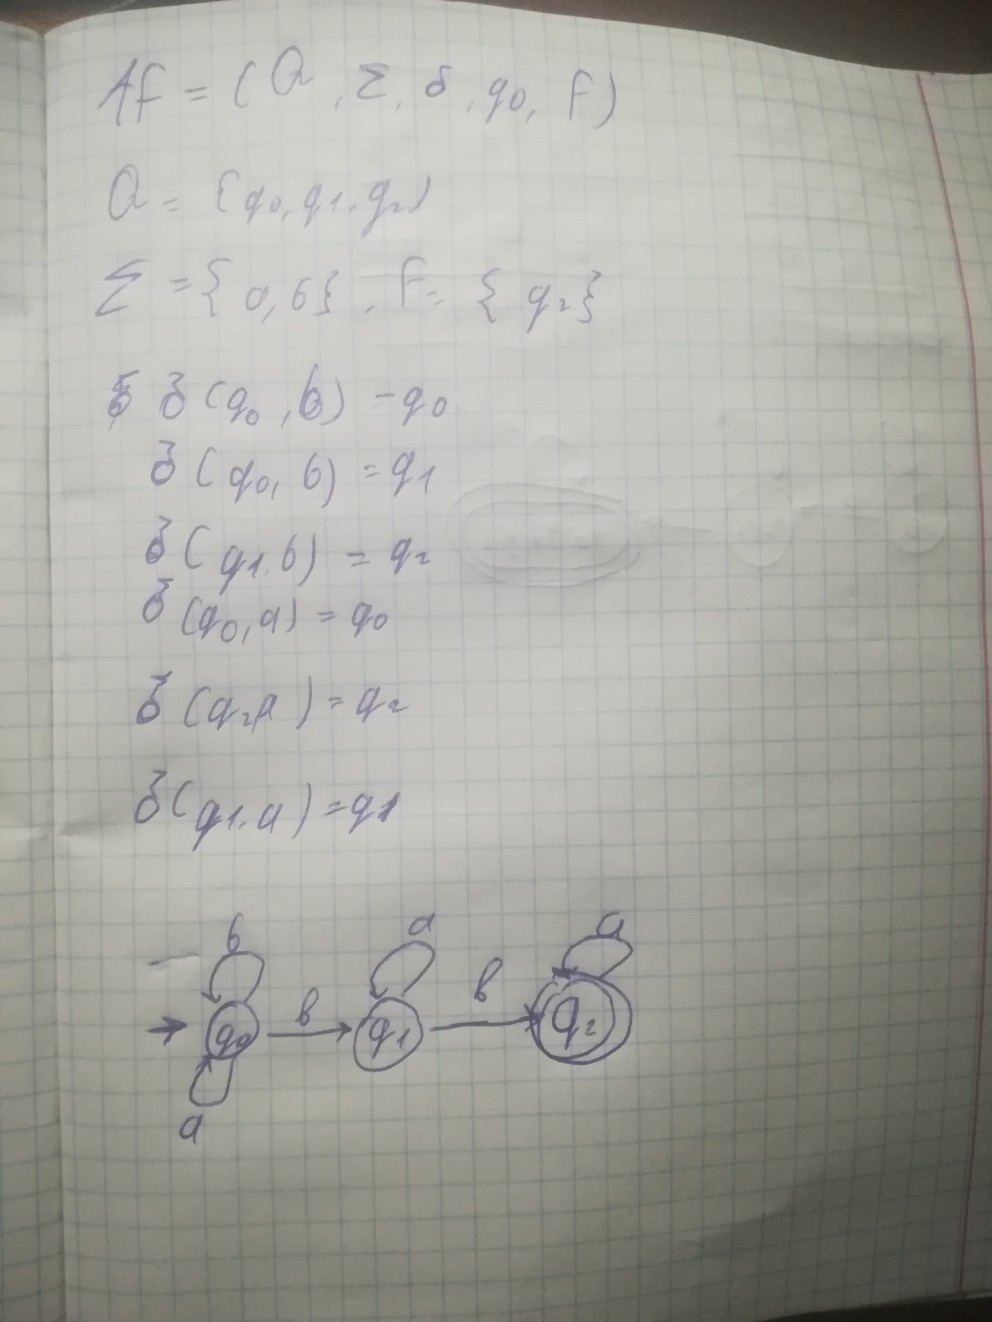 Af = (Q, Σ, δ, q0, F)
Q = {q0, q1, q2)
Σ = {a, b}, F = {q2}
δ (q0, b) - q0
δ (q0, b) = q1
δ (q1, b) = q2
δ (q0, a) = q0
δ (q2, a) = q2
δ (q1, a) = q1
b a a
q0 b q1 b q2
a